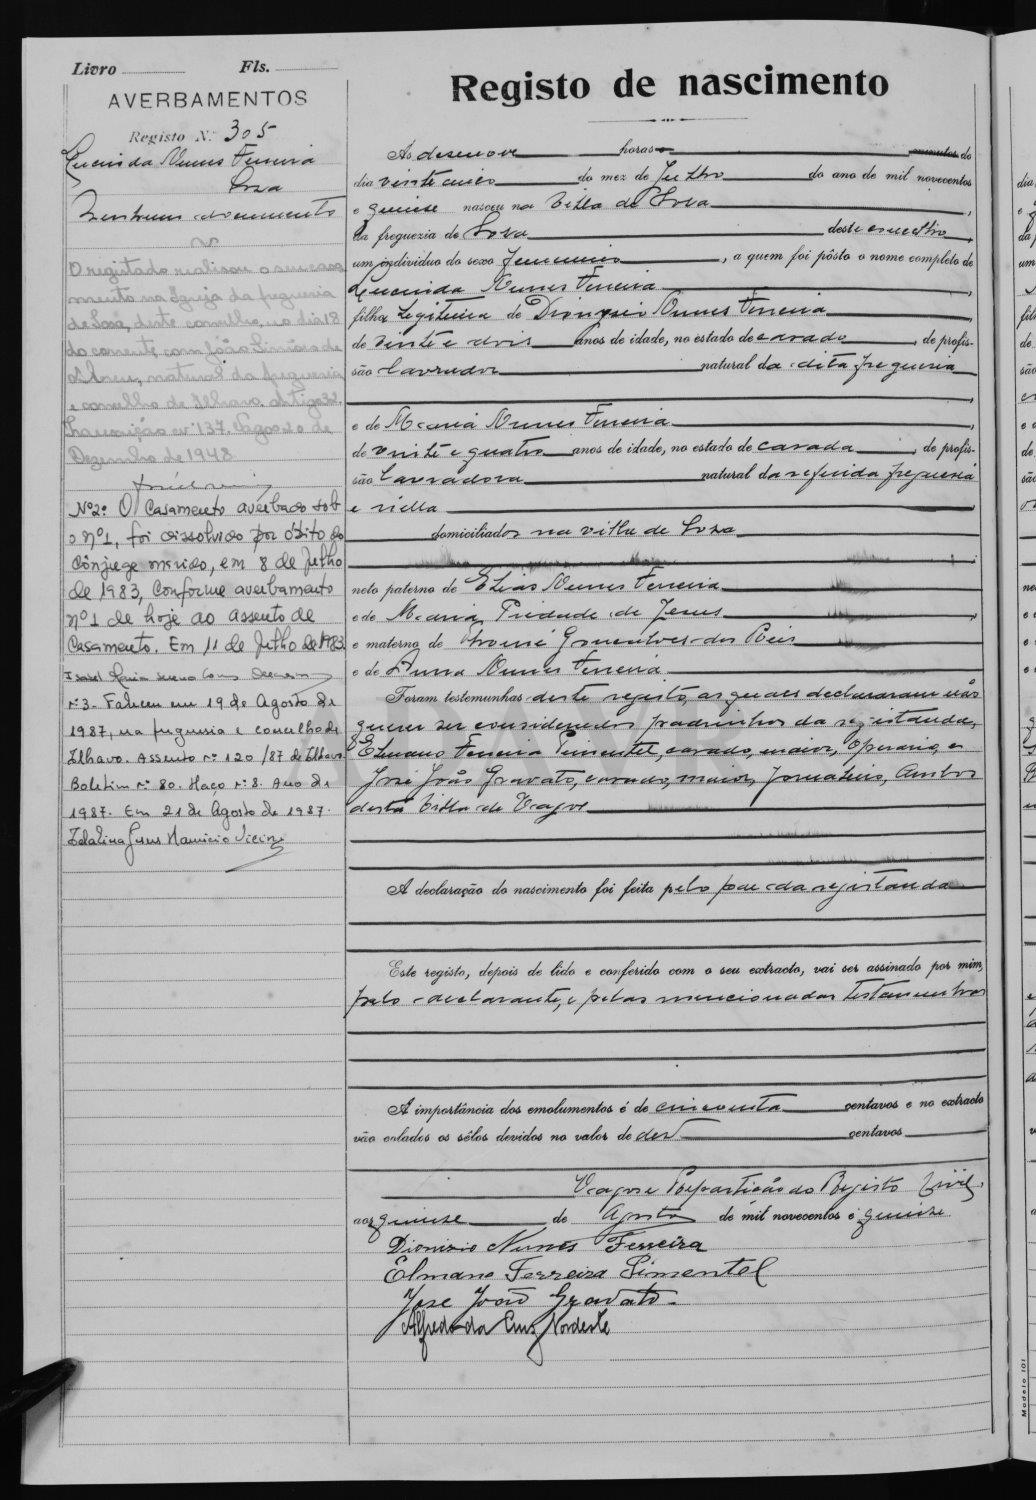 Livro Fls.
AVERBAMENTOS
Registo N.º 305
Lucinda Nunes Ferreira
Soza
Nenhum documento
O registado realisou o seu casa
mento na Igreja da freguesia
de Sosa, deste concelho, no dia 18
do corrente com João Simões de
Abreu, natural da freguesia
e concelho de Ilhavo. Artigo
Transcrição nº 137. Vagos de
Dezembro de 1948
Nº 2: O Casamento averbado sob
o nº 1, foi dissolvido por óbito do
Cônjuge marido, em 8 de Julho
de 1983, Conforme averbamento
nº 1 de hoje ao assento de
Casamento. Em 11 de Julho de 1983.
Isabel Maria
nº 3 - Faleceu em 19 de Agosto de
1987, na freguesia e concelho de
Ilhavo. Assento nº 120/87 de Ilhavo
Boletim nº 80. Maço nº 8. Ano de
1987. Em 21 de Agosto de 1987.
Idalina Jesus Mauricio Vieira
Registo de nascimento
Ás desenove horas minutos do
dia vinte cinco do mez de Julho do ano de mil novecentos
e quinse nasceu na Villa de Soza,
da freguezia de Soza deste concelho,
um individuo do sexo femenino, a quem foi pôsto o nome completo de
Lucinda Nunes Ferreira,
filha legitima de Dionysio Nunes Ferreira,
de vinte e dois anos de idade, no estado de casado, de profis-
são lavrador natural da dita freguesia,
e de Maria Nunes Ferreira,
de vinte e quatro anos de idade, no estado de casada, de profis-
são lavradora natural da referida freguesia
e villa
domiciliados na villa de Soza
neto paterno de Elias Nunes Ferreira
e de Maria Piedade de Jesus
e materno de Thomé Gonçalves dos Reis
e de Anna Nunes Ferreira.
Foram testemunhas deste registo, as quaes declararam não
querer ser considerados padrinhos da registanda,
Elmano Ferreira Pimentel, casado, maior, operario, e
José João Gravato, casado, maior, jornaleiro, ambos
desta Villa de Vagos
A declaração do nascimento foi feita pelo pae da registanda
Este registo, depois de lido e conferido com o seu extracto, vai ser assinado por mim,
pelo declarante, e pelas mencionadas testemunhas
A importância dos emolumentos é de cincoenta centavos e no extracto
vão colados os sêlos devidos no valor de dez centavos
Vagos e Repartição do Registo Civil,
aos quinse de Agosto de mil novecentos e quinse
Dionizio Nunes Ferreira
Elmano Ferreira Pimentel
Jose João Gravato
Alfredo da Cruz Nordeste
Modelo 101